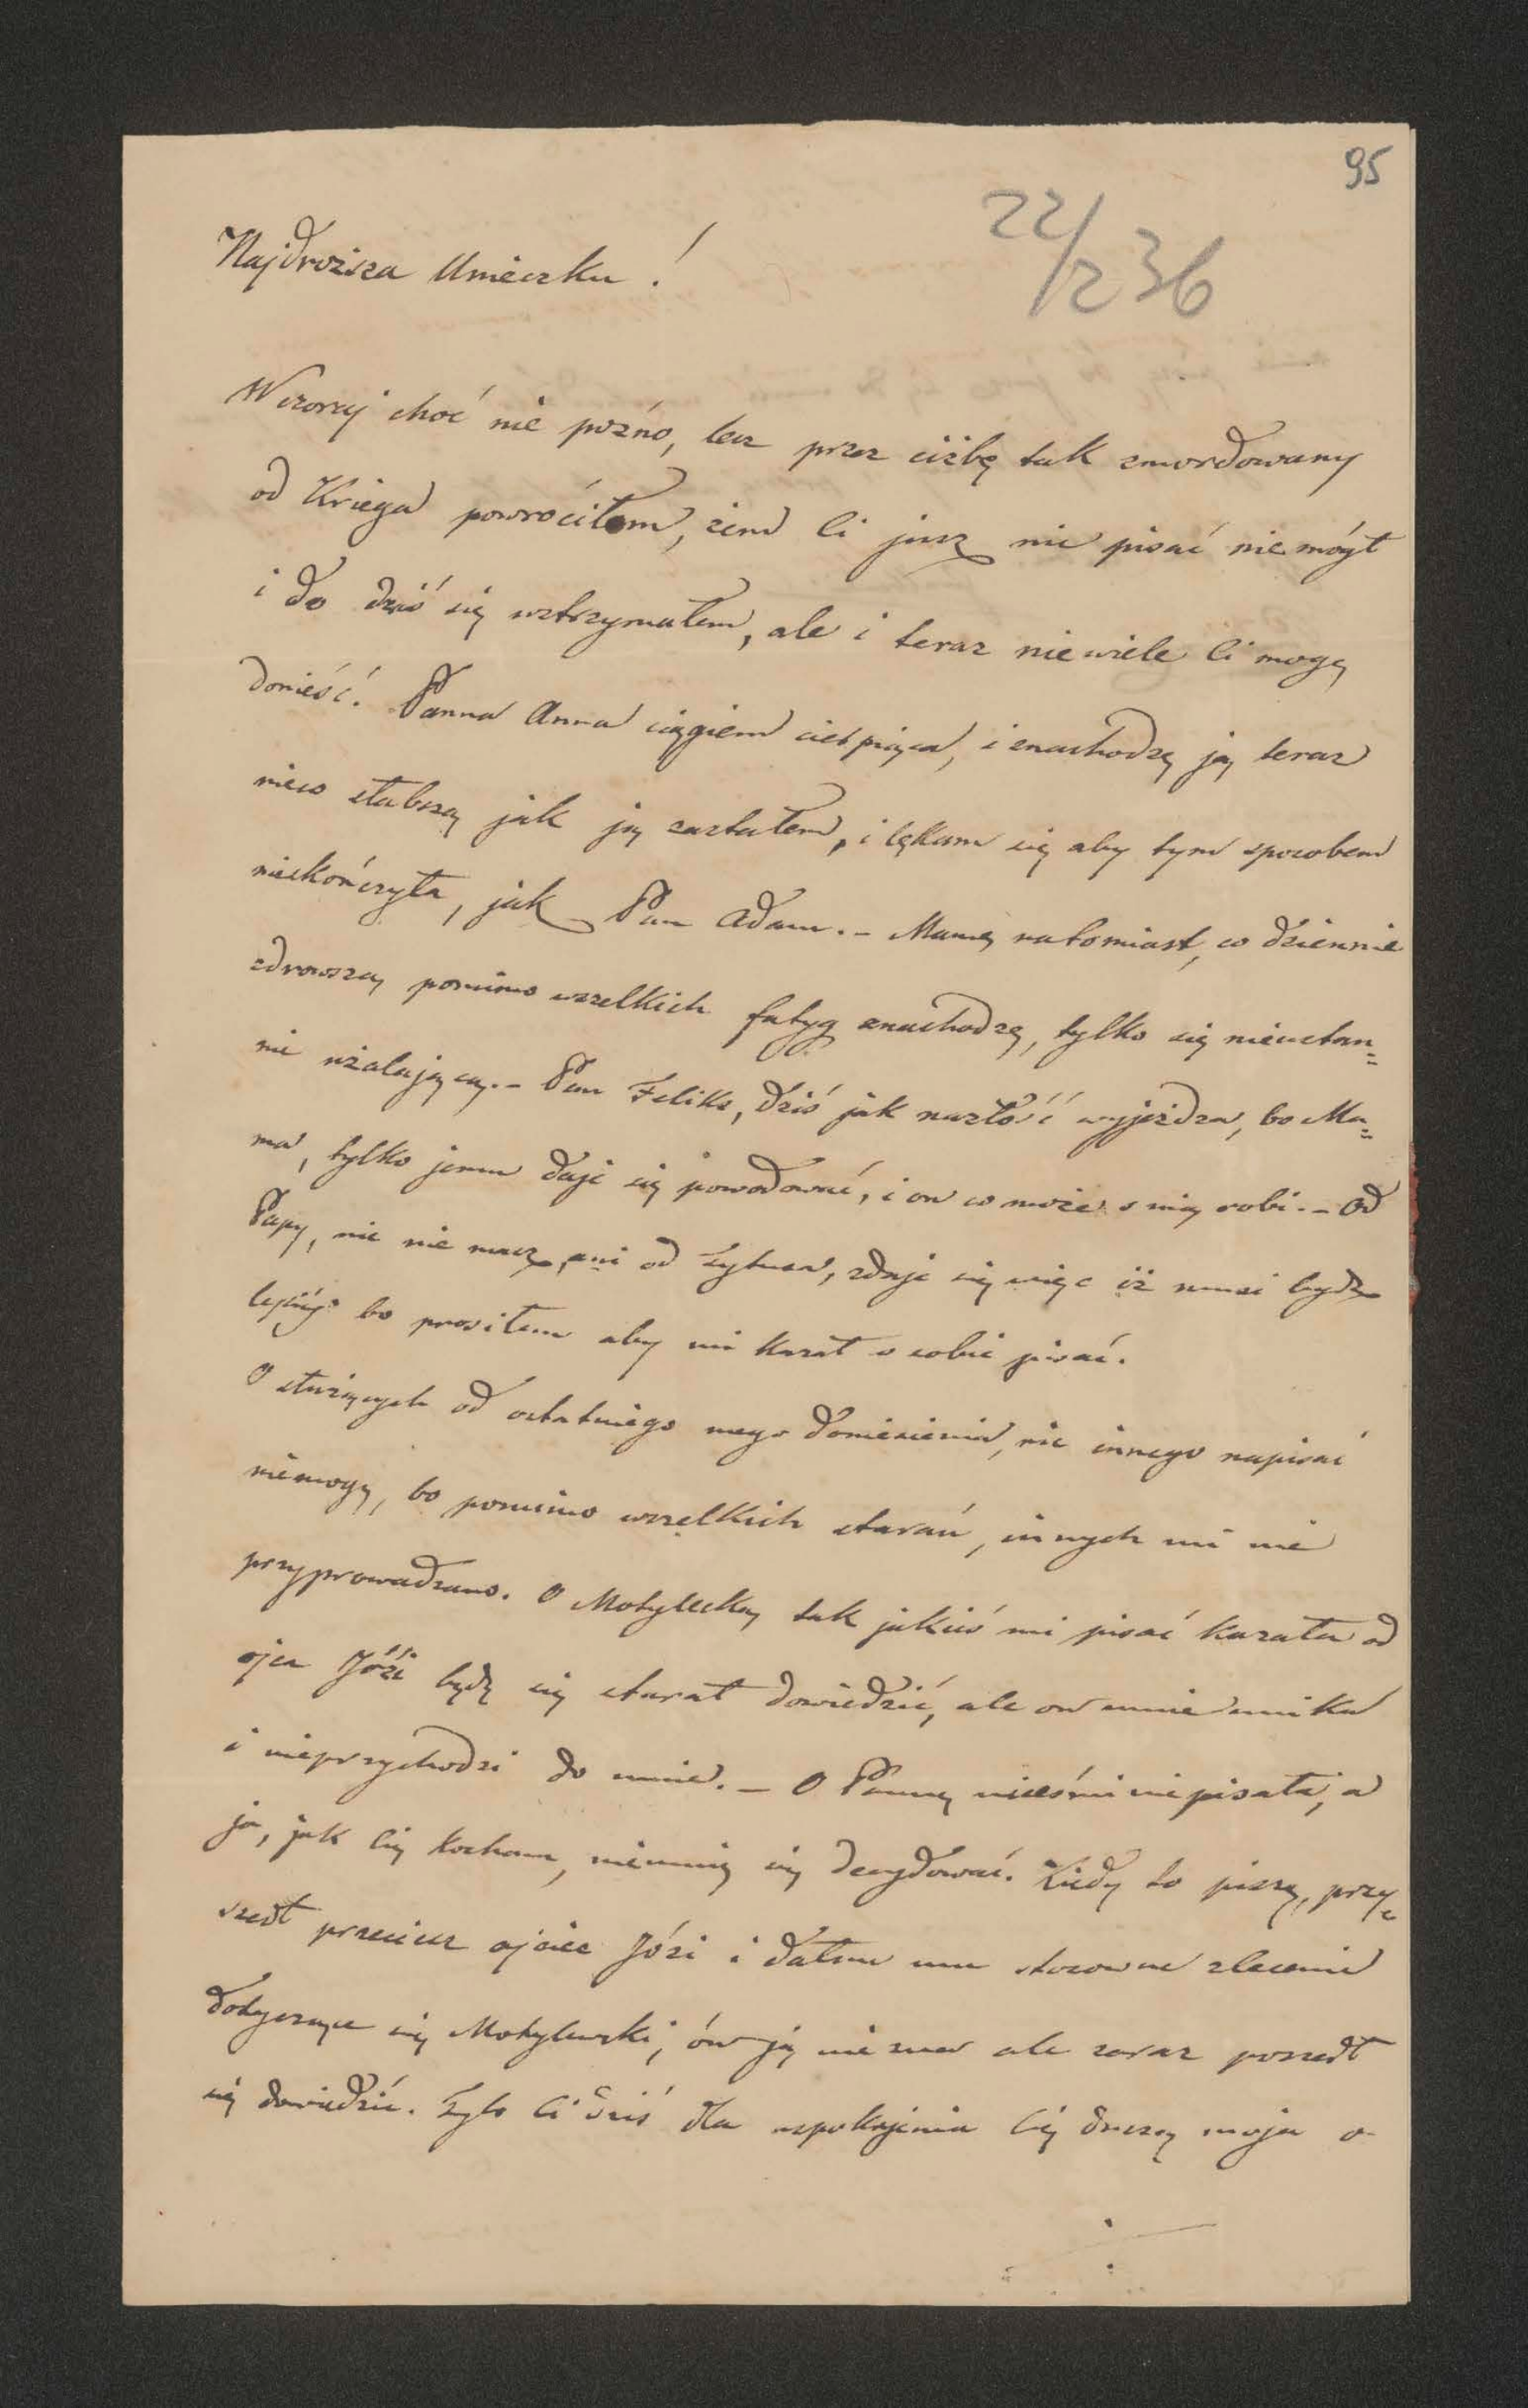 95
22/2 36
Najdroższa Umieczku!
Wczoraj choć nie pozno, lecz przez ciżbę tak zmordowany
od Kriega powrociłem, żem Ci jusz nic pisać niemógł
i do dziś się wstrzymałem, ale i teraz niewiele Ci mogę
donieść. Panna Anna ciągiem cierpiąca, i znachodzę ją teraz
nieco słabszą jak ją zastałem, i lękam się aby tym sposobem
nieskończyła, jak Pan Adam. – Mamę natomiast, co dziennie
zdrowszą pomimo wszelkich fatyg znachodzę, tylko się nieustan=
nie użalającą. – Pan Felix, dziś jak nazłość wyjeżdza, bo Ma=
ma, tylko jemu daje się powodować, i on co może z nią robi. – Od
Papy, nic nie masz, ani od Tytusa, zdaje się więc iż musi bydź
lepiéj bo prosiłem aby mi kazał o sobie pisać.
O służących od ostatniego mego doniesienia, nic innego napisać
niemogę, bo pomimo wszelkich starań, innych mi nie
przyprowadzano. O Motylecką tak jakieś mi pisać kazała od
ojca Józi będę się starał dowiedzić, ale on mnie unika
i nieprzychodzi do mnie. – O Pannę nicеś mi nie pisała, a
ja, jak Cię kocham, nieumię się decydować. Kiedy to piszę, przy=
szedł przeciesz ojciec Józi i dałem mu stosowne zlecenie
dotyczące się Motylewski, ów ją nie zna ale zaraz poszedł
się dowiedzić. Tyle Ci dziś dla uspokojenia Cię duszą moja o